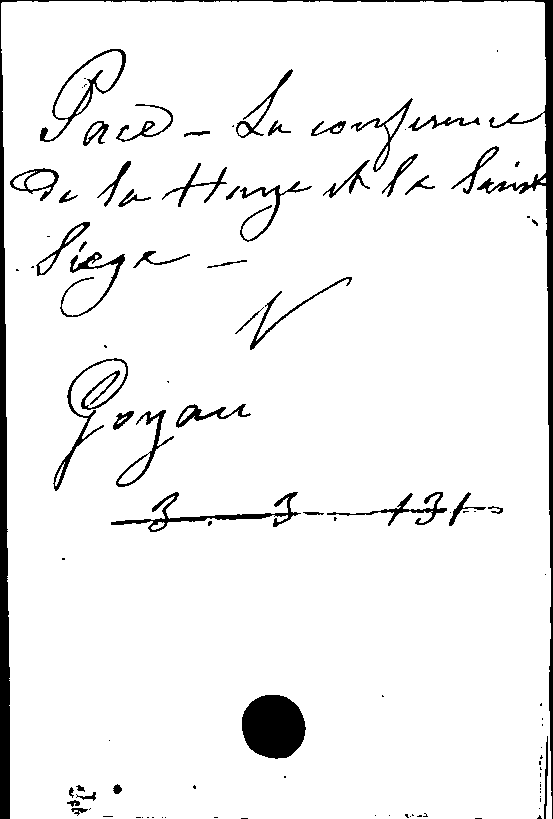 Pace - La conference
de la Haye et le Saint
Siège -
V
Goyau
3. 3. 131